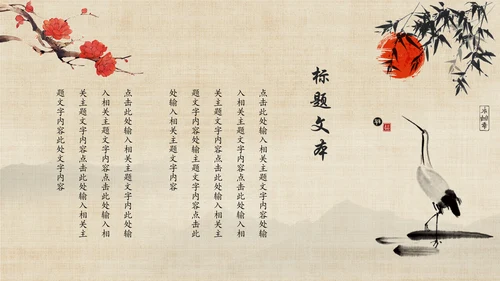 标题文本
点击此处输入相关主题文字内容处输
入相关主题文字内容点击此处输入相
关主题文字内容点击此处输入相关主
题文字内容点击此处输入相关主题文字内容点击此
处输入相关主题文字内容
点击此处输入相关主题文字内此处输
入相关主题文字内容点击此处输入相
关主题文字内容点击此处输入相关主
题文字内容此处文字内容